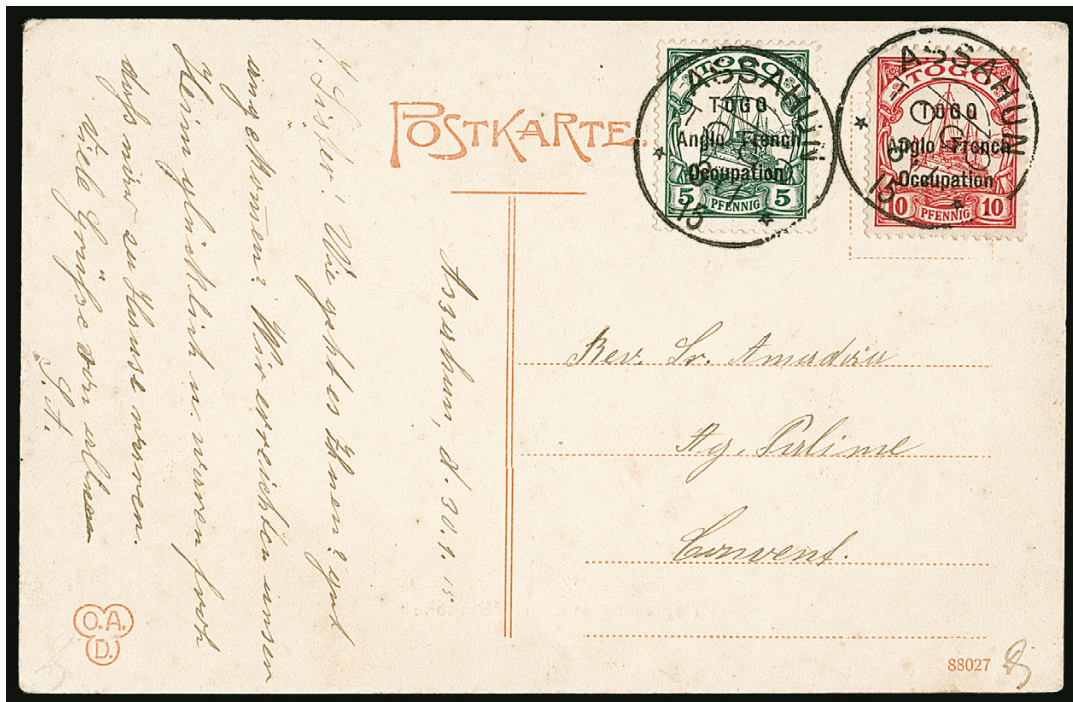 POSTKARTE.
TOGO
TOGO
Anglo-French
Occupation
5 PFENNIG 5
ASSAHUN
TOGO
15
TOGO
TOGO
Anglo-French
Occupation
10 PFENNIG 10
ASSAHUN
TOGO
15
Assahun, d. 30.1. 15
Wie geht es Ihnen? gut
angekommen? Wir erreichten unser
Heim glücklich u. waren froh
daß wir zu Hause waren.
Viele Grüße von allen
S. A.
Rev. Sr. Amadea
Ag. Palime
Convent.
O. A.
D.
88027